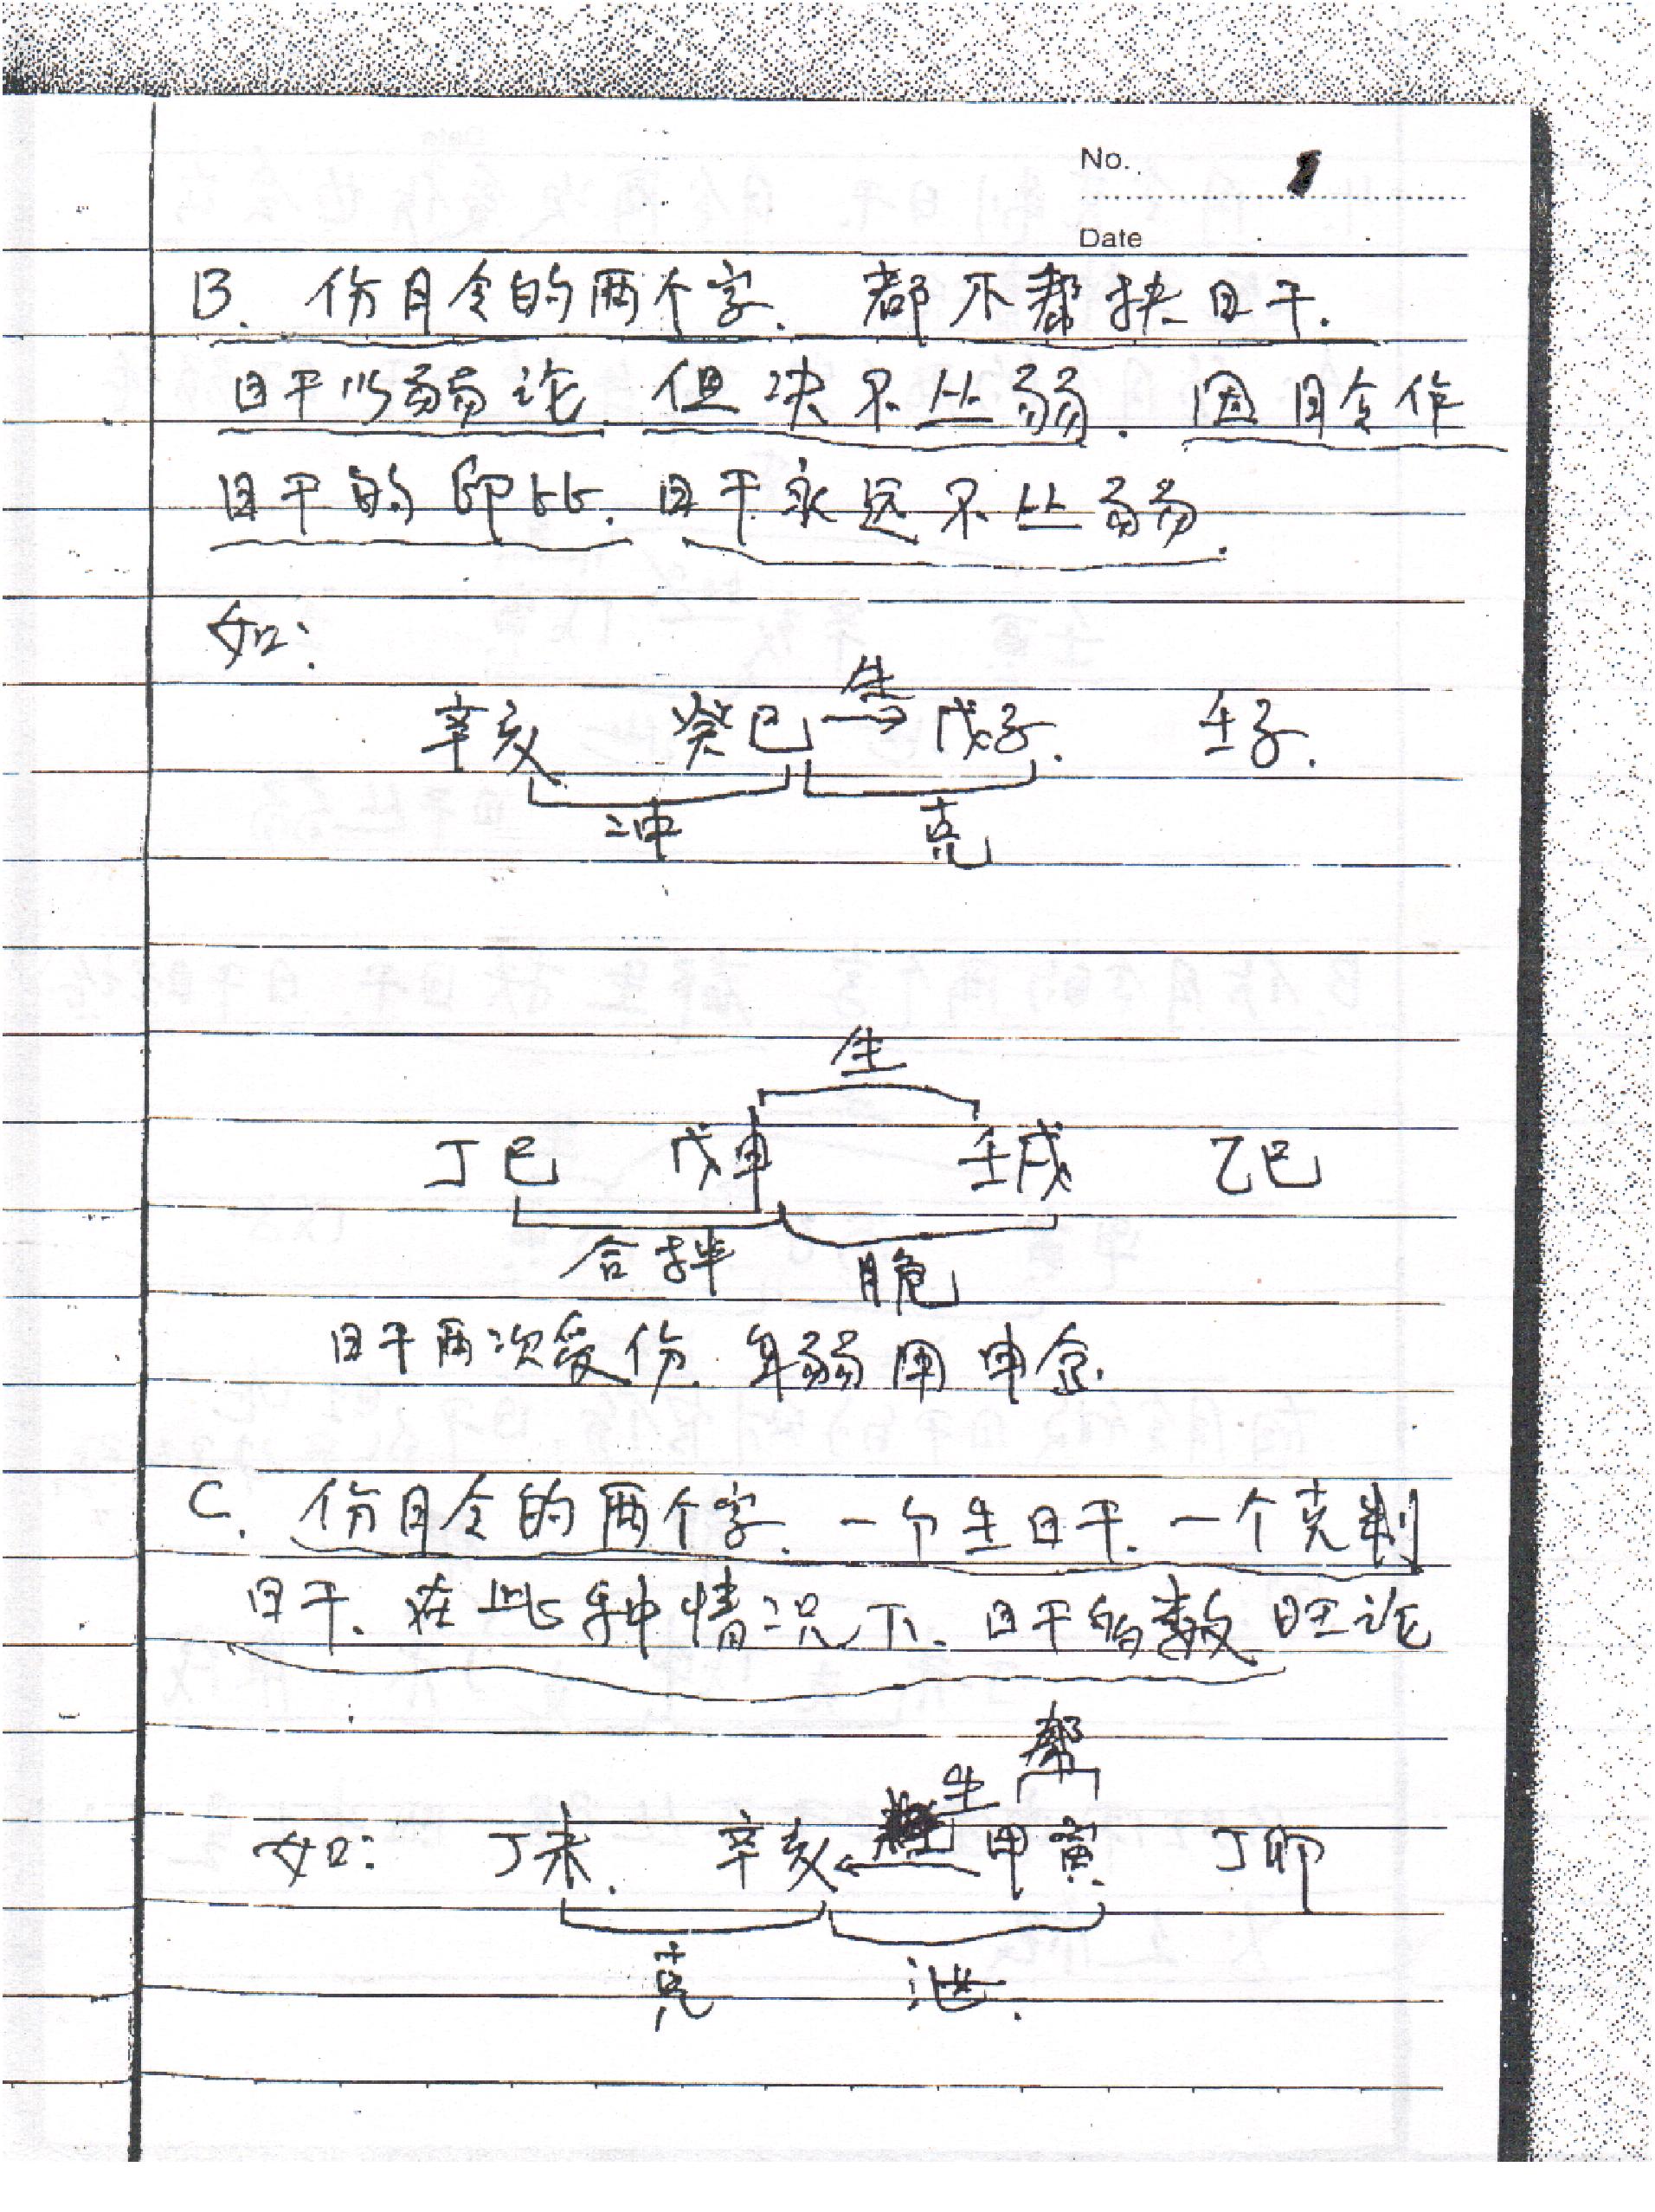 No. 1
Date
B. 伤月令的两个字. 都不帮扶日干.
日干以弱论. 但决不从弱. 因月令作
日干的印比. 日干永远不从弱.
如:
生
辛亥 癸巳 → 戊子. 壬子.
冲 克
生
丁巳 戊申 壬戌 乙巳
合拌 脆
日干两次受伤. 身弱用申金.
C. 伤月令的两个字. 一个生日干. 一个克制
日干. 在此种情况下. 日干的数旺论
帮
生
如: 丁未. 辛亥 ← 甲寅. 丁卯
克 泄.